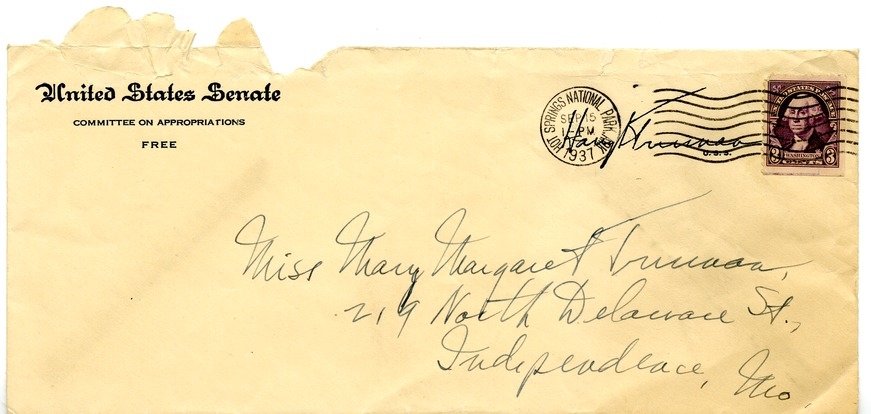 United States Senate
COMMITTEE ON APPROPRIATIONS
FREE
HOT SPRINGS NATIONAL PARK, ARK.
SEP 15
1937
Harry S Truman
U.S.S.
3 WASHINGTON 3
Miss Mary Margaret Truman,
219 North Delaware St.,
Independence, Mo.